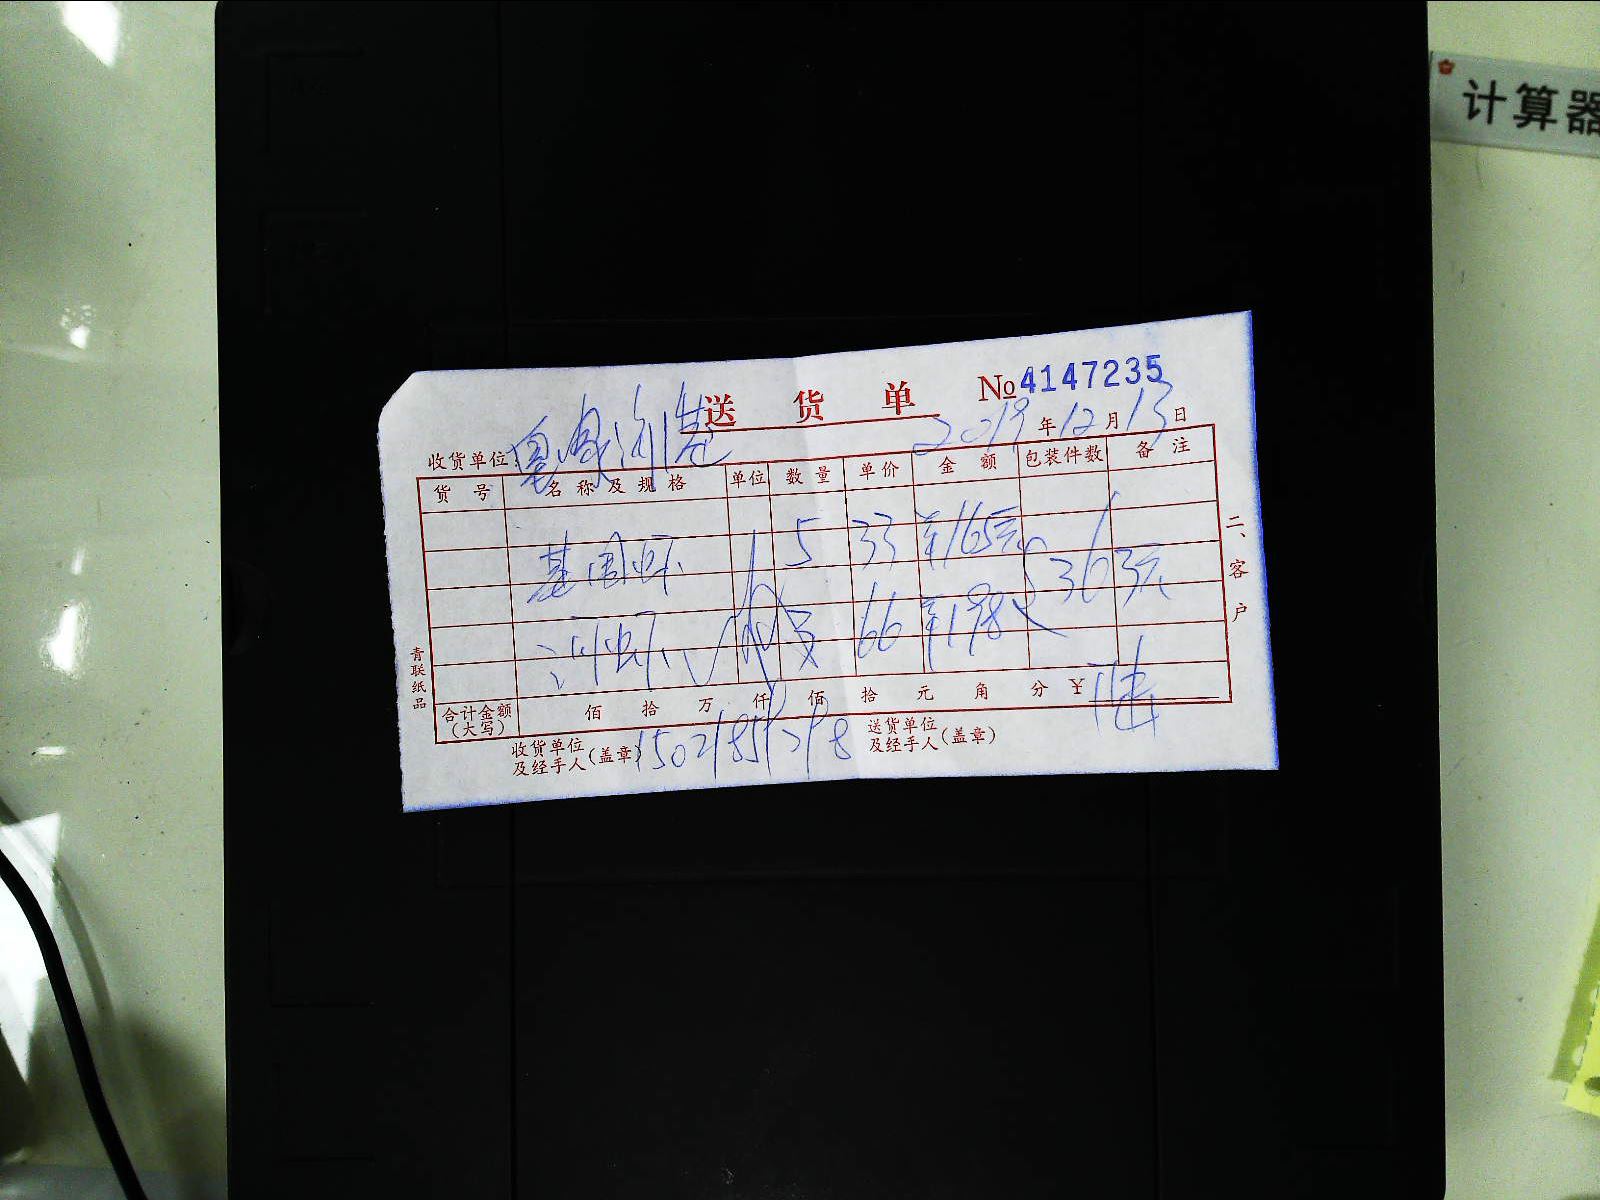 计算器
送货单 №4147235
收货单位: 2019年12月13日
货号 名称及规格 单位 数量 单价 金额 包装件数 备注
基围虾 5 33 ¥165元
363元
河虾 3 66 ¥198
合计金额(大写) 佰 拾 万 仟 佰 拾 元 角 分 ¥
收货单位及经手人(盖章) 送货单位及经手人(盖章)
二、客户
青联纸品